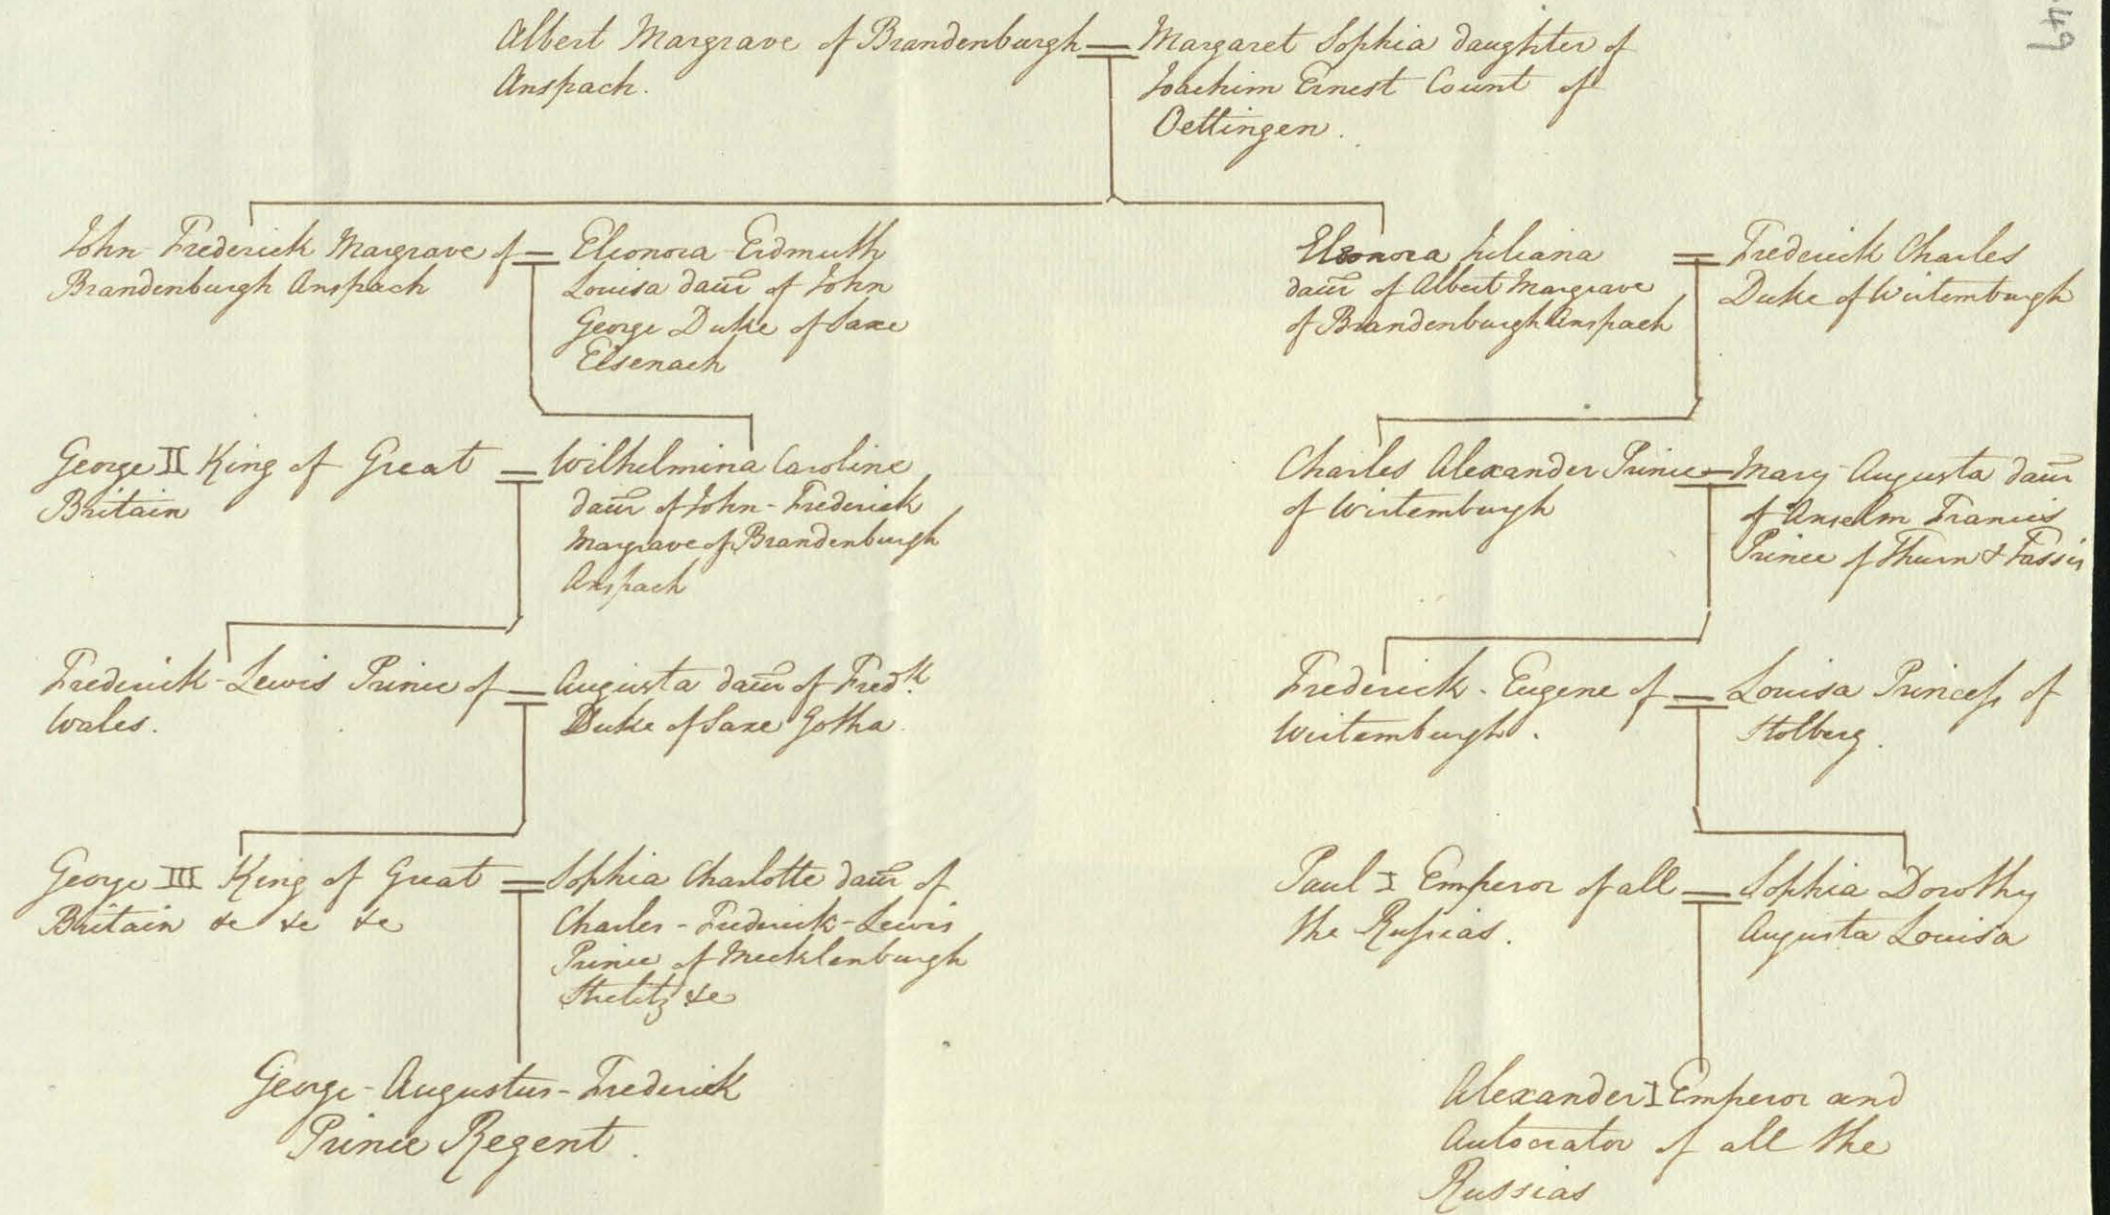 49
Albert Margrave of Brandenburgh
Anspach.
Margaret Sophia daughter of
Joachim Ernest Count of
Oettingen.
John-Frederick Margrave of
Brandenburgh Anspach
Eleonora-Erdmuth
Louisa daur of John
George Duke of Saxe
Eisenach
Eleonora Juliana
daur of Albert Margrave
of Brandenburgh Anspach
Frederick Charles
Duke of Wirtemburgh
George II King of Great
Britain
Wilhelmina Caroline
daur of John-Frederick
Margrave of Brandenburgh
Anspach
Charles Alexander Prince
of Wirtemburgh
Mary-Augusta daur
of Anselm Francis
Prince of Thurn & Tassis
Frederick-Lewis Prince of
Wales.
Augusta daur of Fredk.
Duke of Saxe Gotha.
Frederick-Eugene of
Wirtemburgh.
Louisa Princess of
Stolberg.
George III King of Great
Britain &c &c &c
Sophia Charlotte daur of
Charles-Frederick-Lewis
Prince of Mecklenburgh
Strelitz &c
Paul I Emperor of all
the Russias.
Sophia Dorothy
Augusta Louisa
George-Augustus-Frederick
Prince Regent.
Alexander I Emperor and
Autocrator of all the
Russias